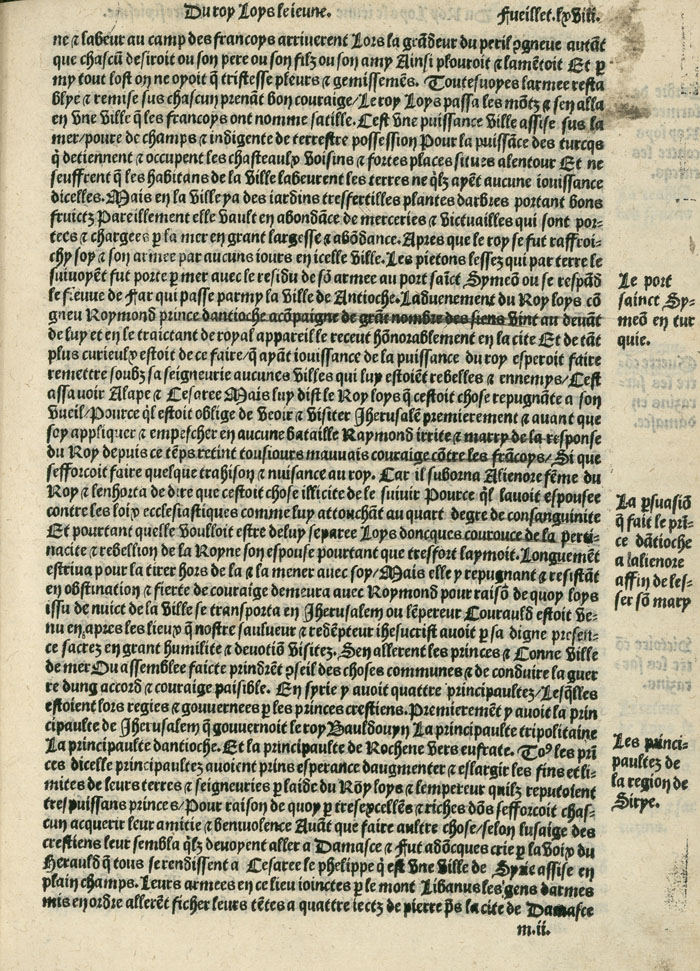 Du roy Loys le ieune. Fueillet. lxviii.
ne & labeur au camp des francoys arriuerent Lors la grãdeur du peril ꝯgneue autãt
que chascũ desiroit ou son pere ou son filz ou son amy Ainsi plouroit & lamẽtoit Et ꝑ
my tout lost on ne oyoit q̃ tristesse pleurs & gemissemẽs. Toutesuoyes larmee resta
blye & remise sus chascun prenãt bon couraige/Le roy Loys passa les mõtz & sen alla
en vne ville q̃ les francoys ont nomme satille. Cest vne puissance ville assise sus la
mer/poure de champs & indigente de terrestre possession Pour la puissãce des turcqs
q̃ detiennent & occupent les chasteaulx voisins & fortes places situes alentour Et ne
seuffrent q̃ les habitans de la ville labeurent les terres ne q̃lz ayẽt aucune iouissance
dicelles. Mais en la ville ya des iardins tresfertilles plantes darbres portant bons
fruictz Pareillement elle vault en abondãce de merceries & victuailles qui sont por-
tees & chargees ꝑ la mer en grant largesse & abõdance. Apres que le roy se fut raffroi-
chy soy & son armee par aucuns iours en icelle ville. Les pietons lessez qui par terre le
suiuoyẽt fut porte ꝑ mer auec le residu de sõ armee au port saĩct Symeõ ou se respãd
le fleuue de Far qui passe parmy la ville de Antioche. Laduenement du Roy loys cõ
gneu Raymond prince dantioche acõpaigne de grãt nombre des siens vint au deuãt
de luy et en le traictant de royal appareil le receut hõnorablement en la cite Et de tãt
plus curieulx estoit de ce faire/q̃ ayãt iouissance de la puissance du roy esperoit faire
remettre soubz sa seigneurie aucunes villes qui luy estoiẽt rebelles & ennemys/Cest
assauoir Alape & Cesaree Mais luy dist le Roy loys q̃ cestoit chose repugnãte a son
vueil/Pource q̃l estoit oblige de veoir & visiter Jherusalẽ premierement & auant que
soy appliquer & empescher en aucune bataille Raymond irrite & marry de la response
du Roy depuis ce tẽps retint tousiours mauuais couraige cõtre les frãcoys/Si que
sefforcoit faire quelque trahison & nuisance au roy. Car il suborna Alienore fẽme du
Roy & lenhorta de dire que cestoit chose illicite de le suiuir Pource q̃l lauoit espousee
contre les loix ecclesiastiques comme luy attouchãt au quart degre de consanguinite
Et pourtant quelle voulloit estre deluy separee Loys doncques courouce de la perti-
nacite & rebellion de la Royne son espouse pourtant que tresfort laymoit. Longuemẽt
estriua pour la tirer hors de la & la mener auec soy/Mais elle y repugnant & resistãt
en obstination & fierte de couraige demeura auec Roymond pour raisõ de quoy loys
issu de nuict de la ville se transporta en Jherusalem ou lẽpereur Courauld estoit ve-
nu en apres les lieux q̃ nostre saulueur & redẽpteur ihesucrist auoit ꝑ sa digne presen-
ce sacrez en grant humilite & deuotiõ visitez. Sen allerent les princes & Conne ville
de mer Ou assemblee faicte prindrẽt ꝯseil des choses communes & de conduire la guer
re dung accord & couraige paisible. En syrie y auoit quattre principaultez/Lesq̃lles
estoient lors regies & gouuernees ꝑ les princes crestiens. Premieremẽt y auoit la prin
cipaulte de Jherusalem q̃ gouuernoit le roy Bauldouyn La principaulte tripolitaine
La principaulte dantioche. Et la principaulte de Rochene vers eufrate. Toꝰ les prĩ
ces dicelle principaultez auoient prins esperance daugmenter & eslargir les fins et li-
mites de leurs terres & seigneuries ꝑ laide du Rõy loys & lempereur quilz reputoient
trespuissans princes/Pour raison de quoy ꝑ tresexcellẽs & riches dõs sefforcoit chas-
cun acquerir leur amitie & beniuolence Auãt que faire aultre chose/selon lusaige des
crestiens leur sembla q̃lz deuoyent aller a Damasce & fut adõcques crie ꝑ la voix du
Herauld q̃ tous se rendissent a Cesaree le phelippe q̃ est vne ville de Syrie assise en
plain champs. Leurs armees en ce lieu ioinctes ꝑ le mont Libanus les gens darmes
mis en ordre allerẽt ficher leurs tẽtes a quattre iectz de pierre p̃s la cite de Damasce
m.ii.
Le port
sainct Sy-
meõ en tur
quie.
La ꝑsuasiõ
q̃ fait le prĩ-
ce dãtioche
a lalienore
affin de les-
ser sõ mary
Les princi-
paultez de
la region de
Sirye.